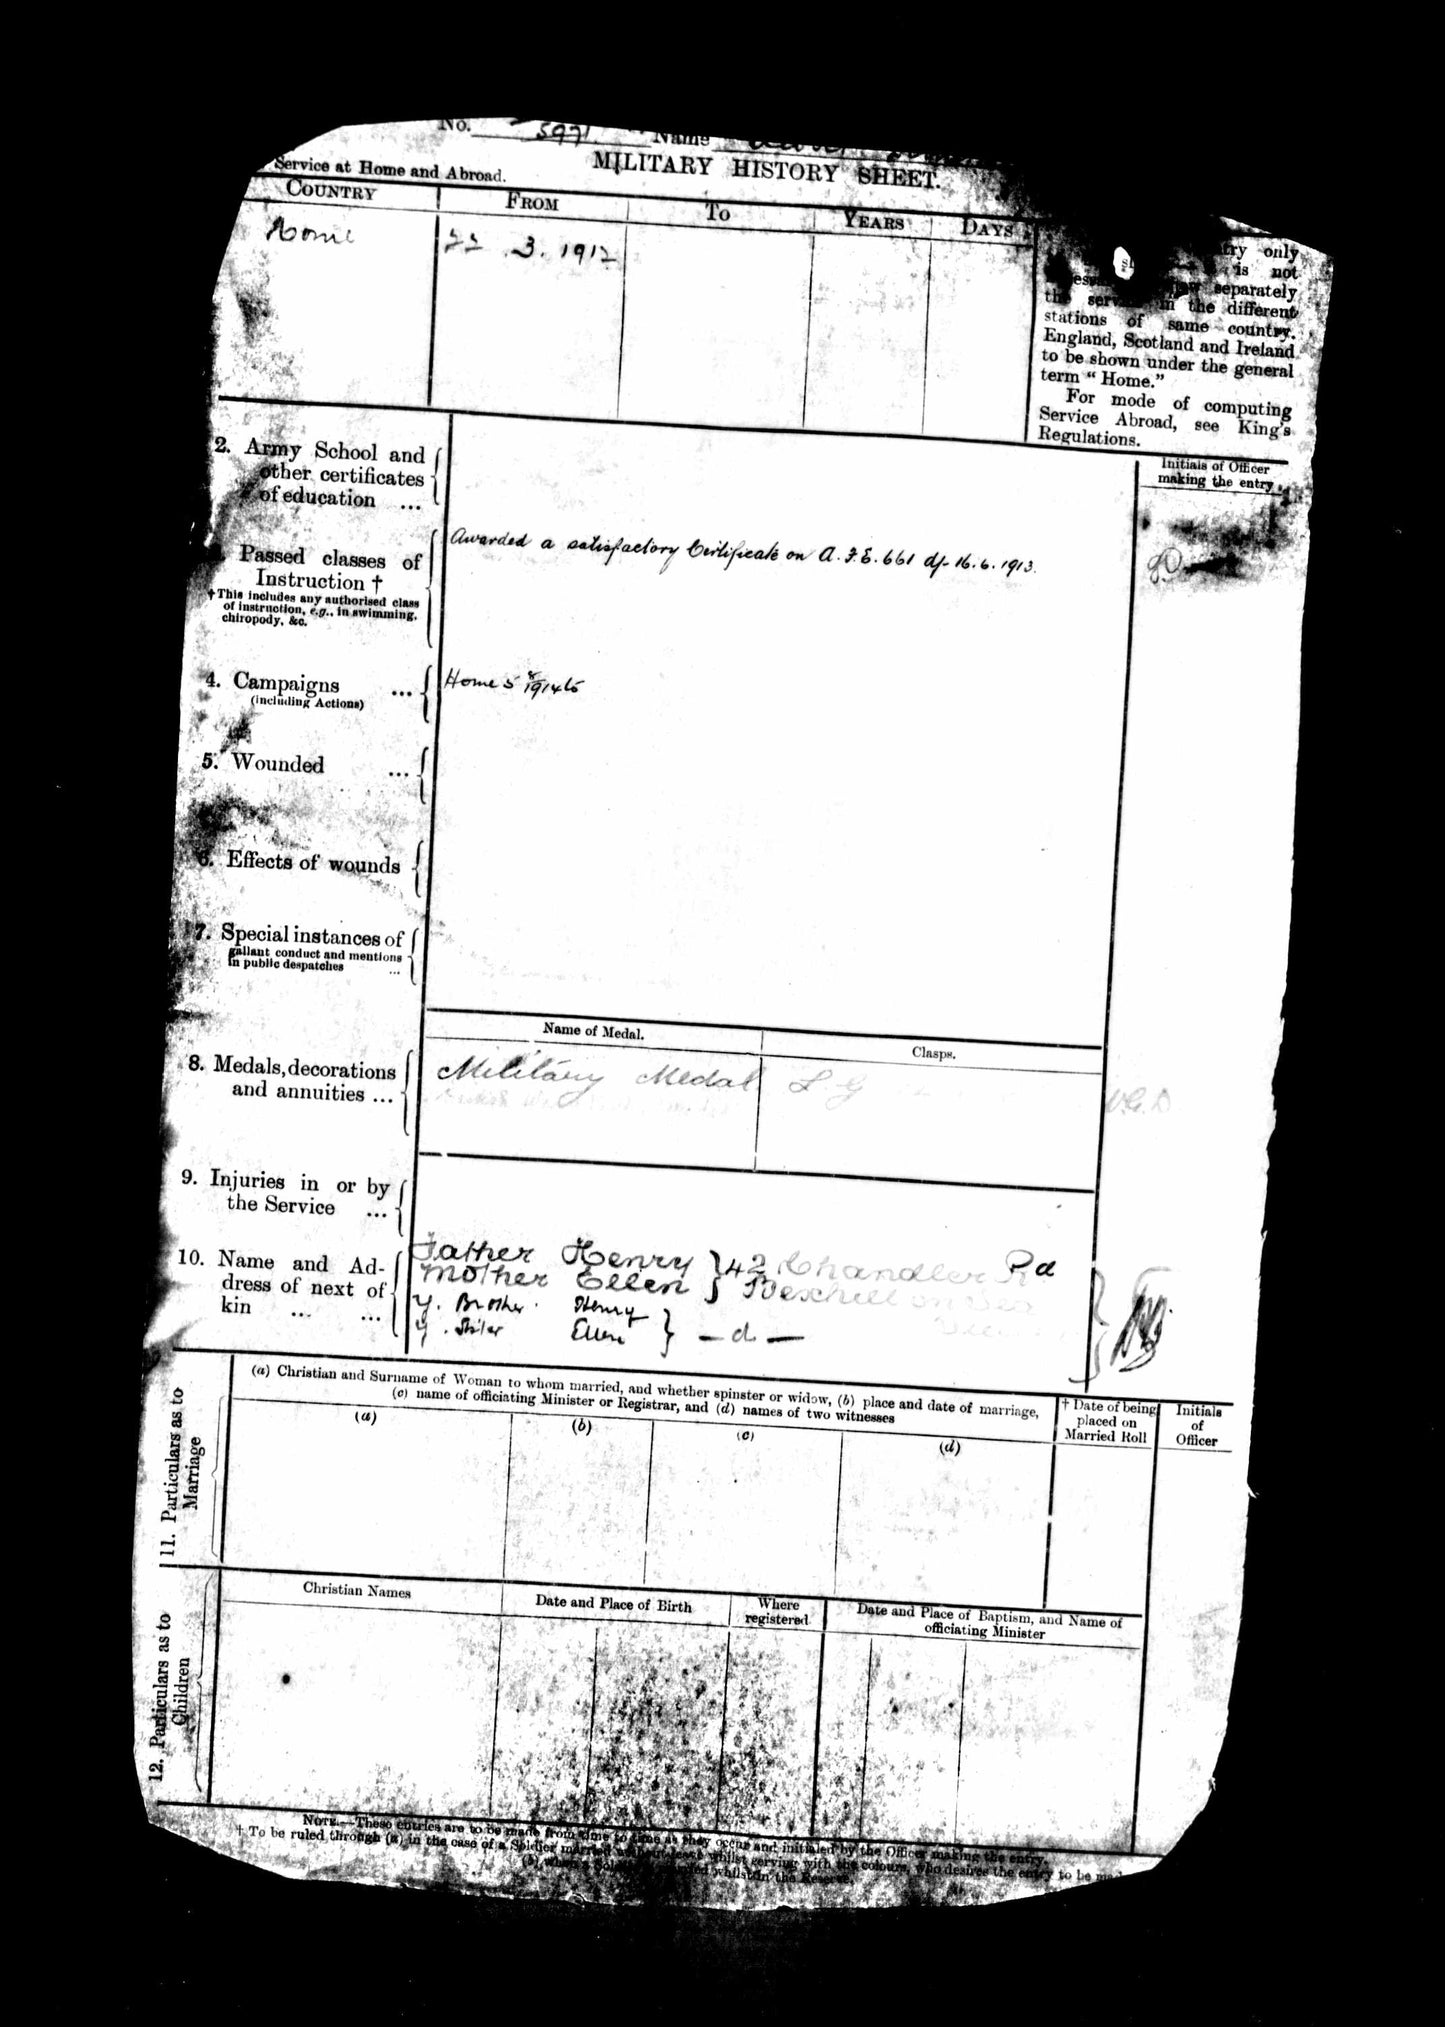 No. 5971 Name
MILITARY HISTORY SHEET.
Service at Home and Abroad.
COUNTRY FROM TO YEARS DAYS
Home 22 . 3 . 1912
only
is not
separately
the in the different
stations of same country.
England, Scotland and Ireland
to be shown under the general
term “ Home.”
For mode of computing
Service Abroad, see King's
Regulations.
Initials of Officer
making the entry
2. Army School and
other certificates
of education ...
Passed classes of
Instruction †
† This includes any authorised class
of instruction, e.g., in swimming,
chiropody, &c.
Awarded a satisfactory Certificate on A. F. E. 661 d/- 16. 6. 1913.
4. Campaigns ...
(including Actions)
Home 5 8/1914 to
5. Wounded ...
6. Effects of wounds
7. Special instances of
gallant conduct and mentions
in public despatches ...
Name of Medal. Clasps.
8. Medals, decorations
and annuities ...
Military Medal L G
9. Injuries in or by
the Service ...
10. Name and Ad-
dress of next of
kin ... ...
Father Henry } 42 Chandler Rd
Mother Ellen } Bexhill on Sea
Y. Brother. Henry
Y. Sister Ellen } — d —
11. Particulars as to
Marriage
(a) Christian and Surname of Woman to whom married, and whether spinster or widow, (b) place and date of marriage,
(c) name of officiating Minister or Registrar, and (d) names of two witnesses
(a) (b) (c) (d)
† Date of being
placed on
Married Roll
Initials
of
Officer
12. Particulars as to
Children
Christian Names
Date and Place of Birth
Where
registered
Date and Place of Baptism, and Name of
officiating Minister
NOTE.—These entries are to be made from time to time as they occur and initialed by the Officer making the entry.
† To be ruled through (a) in the case of a Soldier married without leave whilst serving with the colours, who desires the entry to be
(b) when a Soldier married whilst in the Reserve.